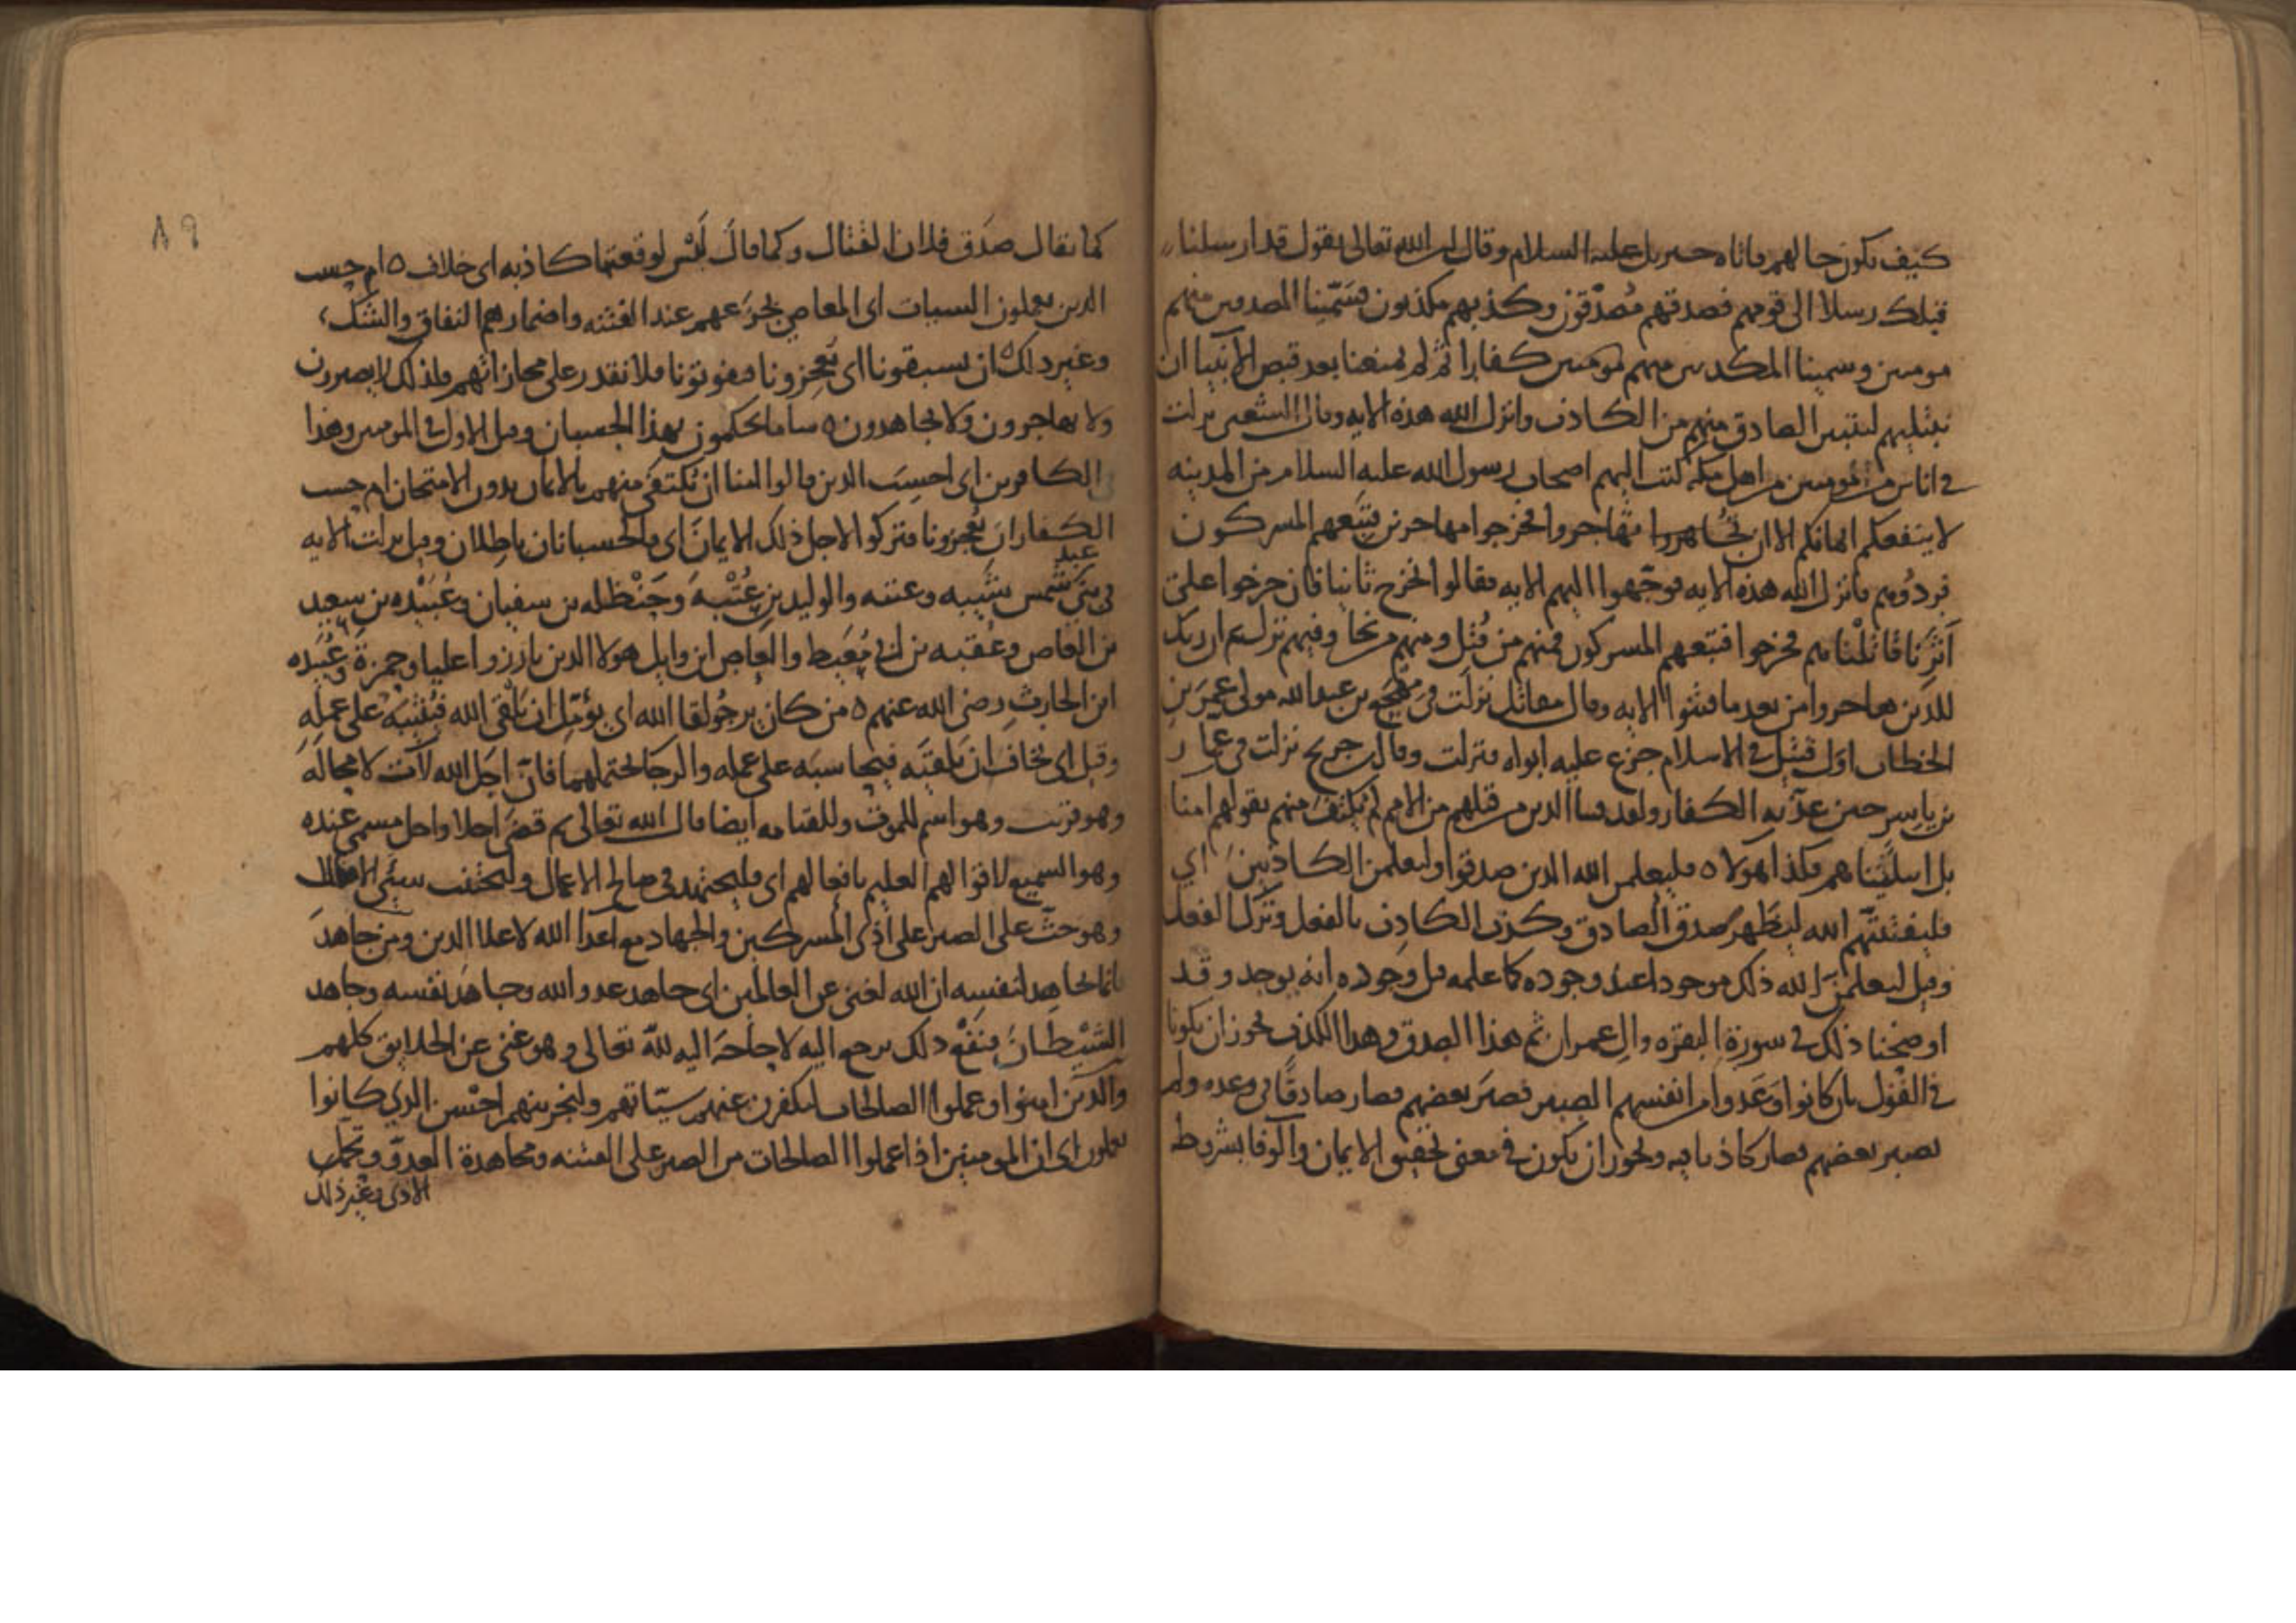 كيف يكون حالهم فاتاه جبريل عليه السلام وقال ان الله تعالى يقول قد ارسلنا
قبلك رسلا الى قومهم فصدقهم مصدقون وكذبهم مكذبون فسمينا المصدقين منهم
مومنين وسمينا المكذبين منهم كفارا ثم لم يمنعنا بعد قبض الانبيا ان
نبتليهم ليتبين الصادق منهم من الكاذب وانزل الله هذه الايه وقال الشعبى نزلت
في اناس مومنين من اهل مكة كتب اليهم اصحاب رسول الله عليه السلام من المدينه
لا ينفعكم ايمانكم الا ان تهاجروا فخرجوا مهاجرين فتبعهم المسركون
فردوهم فانزل الله هذه الايه فوجهوا اليهم الايه فقالوا نخرج ثانيا فان خرجوا على
اثرنا قاتلناهم فخرجوا فتبعهم المسركون فمنهم من قتل ومنهم من نجا وفيهم نزل ثم ان ربك
للذين هاجروا من بعد ما فتنوا الايه وقال مقاتل نزلت في مهجع بن عبد الله مولى عمر بن
الخطاب اول قتيل في الاسلام جزع عليه ابواه فنزلت وقال ابن جريج نزلت في عمار
بن ياسر حين عذبه الكفار ولقد فتنا الذين من قبلهم من الامم لم نكتف منهم بقولهم امنا
بل ابتليناهم فكذا هولاء فليعلمن الله الذين صدقوا وليعلمن الكاذبين اي
فليفتننهم الله ليظهر صدق الصادق وكذب الكاذب بالفعل وترك الفعل
وقيل ليعلمن الله ذلك موجودا عند وجوده كما علمه قبل وجوده انه يوجد وقد
اوضحنا ذلك في سورة البقرة وال عمران ثم هذا الصدق وهذا الكذب يجوز ان يكونا
في القول بان كانوا وعدوا من انفسهم الصبر فصبر بعضهم فصار صادقا في وعده ولم
يصبر بعضهم فصار كاذبا فيه ويجوز ان يكون في معنى تحقيق الايمان والوفا بشروطه
٨٩
كما يقال صدق فلان القتال وكما قال ليس لوقعتها كاذبه اى خلاف ه ام حسب
الذين يعملون السيات اى المعاصى بجزعهم عند الفتنه واضمارهم النفاق والشك
وغير ذلك ان يسبقونا اى يعجزونا فيفوتونا فلا نقدر على مجازاتهم فلذلك لا يصبرون
ولا يهاجرون ولا يجاهدون ه سا ما يحكمون بهذا الحسبان وقيل الاول في المومنين وهذا
في الكافرين اى احسب الذين قالوا امنا ان نكتفى منهم بالايمان بدون الامتحان ام حسب
الكفار ان يعجزونا فتركوا لاجل ذلك الايمان اى فالحسبانان باطلان وقيل نزلت الايه
في بنى عبد شمس شيبه وعتبه والوليد بن عتبة وحنظله بن سفيان وعبيده بن سعيد
بن العاص وعقبه بن ابي معيط والعاص ابن وايل هولا الذين بارزوا عليا وحمزة وعبيده
ابن الحارث رضى الله عنهم ه من كان يرجو لقا الله اى يؤمل ان يلقى الله فيثيبه على عمله
وقيل اى يخاف ان يلقيه فيحاسبه على عمله والرجا يحتملهما فان اجل الله لآت لا محالة
وهو قريب وهو اسم للموت وللقيامه ايضا قال الله تعالى ثم قضى اجلا واجل مسمى عنده
وهو السميع لاقوالهم العليم بافعالهم اى فليجتهد في صالح الاعمال وليجتنب سيئ
وهو حث على الصبر على اذى المسركين والجهاد مع اعدا الله لاعلا الدين ومن جاهد
فانما يجاهد لنفسه ان الله لغنى عن العالمين اى جاهد عدو الله وجاهد نفسه وجاهد
الشيطان فنفع ذلك يرجع اليه لا حاجة اليه لله تعالى وهو غنى عن الخلايق كلهم
والذين امنوا وعملوا الصالحات لنكفرن عنهم سيّاتهم ولنجزينهم احسن الذي كانوا
يعملون اى ان المومنين اذا عملوا الصالحات من الصبر على الفتنه ومجاهدة العدوّ وتحمل
الاذى وغير ذلك